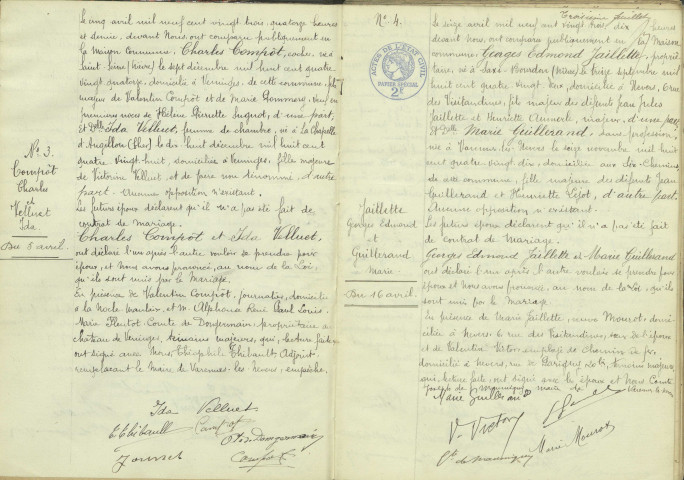 Le cinq avril mil neuf cent vingt trois quatorze heures
et demie, devant Nous ont comparu publiquement en
la Maison commune. Charles Compôt, cocher, né à
Saint (Nièvre), le sept décembre mil huit cent quatre
vingt quatorze, domicilié à Veninges, de cette commune, fils
majeur de Valentin Compôt et de Marie Gommery, veuf en
premières noces de Hélène Pierrette d'une part,
Et Dlle Ida Velluet, femme de chambre, née à la Chapelle
d'Angillon (Cher) le dix huit décembre mil huit cent
quatre vingt-huit, domiciliée à Veninges, fille majeure
de Victorine Velluet et de père non dénommé, d'autre
part. Aucune opposition n'existant.
Les futurs époux déclarent qu'il n'a pas été fait de
contrat de mariage.
Charles Compôt et Ida Velluet,
ont déclaré l'un après l'autre vouloir se prendre pour
époux, et Nous avons prononcé, au nom de la Loi,
qu'ils sont unis par le Mariage.
En présence de Valentin Compôt, journalier, domicilié
à la Roche et M. Alphonse René Paul Louis
Marie Comte de Dompernin, propriétaire au
château de Veninges, témoins majeurs, qui, lecture faite
ont signé avec Nous, Théophile Thibault, Adjoint
remplaçant le Maire de Varennes-les Nevers, empêché.
Ida Velluet
T Thibault Compôt
Jousset Compôt
N° 3.
Compôt
Charles
et
Velluet
Ida
Du 5 avril.
Troisième feuillet
N° 4.
ACTES DE L'ÉTAT CIVIL
PAPIER SPÉCIAL
2F
Jaillette
Georges Edmond
et
Guillerand
Marie.
Du 16 avril.
Le seize avril mil neuf cent vingt trois dix heures
devant nous, ont comparu publiquement en la Maison
commune. Georges Edmond Jaillette, propriétaire,
né à Saxi-Bourdon (Nièvre) le treize septembre mil
huit cent quatre vingt domicilié à Nevers, 6 rue
des Visitandines, fils majeur des défunts Jean Jules
Jaillette et Henriette majeur, d'une part,
Et Dlle Marie Guillerand, sans profession,
née à Varennes les Nevers le seize novembre mil huit
cent quatre vingt dix, domiciliée aux dix-Chemins
de cette commune, fille majeure des défunts Jean
Guillerand et Henriette Lejot, d'autre part.
Aucune opposition n'existant.
Les futurs époux déclarent qu'il n'a pas été fait
de contrat de Mariage.
Georges Edmond Jaillette et Marie Guillerand
ont déclaré l'un après l'autre vouloir se prendre pour
époux et nous avons prononcé, au nom de la Loi, qu'ils
sont unis par le Mariage.
En présence de Marie Jaillette, veuve Mouroz, domiciliée
à Nevers, 6 rue des Visitandines, sœur de l'époux
et de Valentin Victor, employé de Chemin de fer,
domicilié à Nevers, rue de témoins majeurs,
qui, lecture faite, ont signé avec les époux et Nous Comte
Marie Guillerand
V. Victor
Marie Mouroz